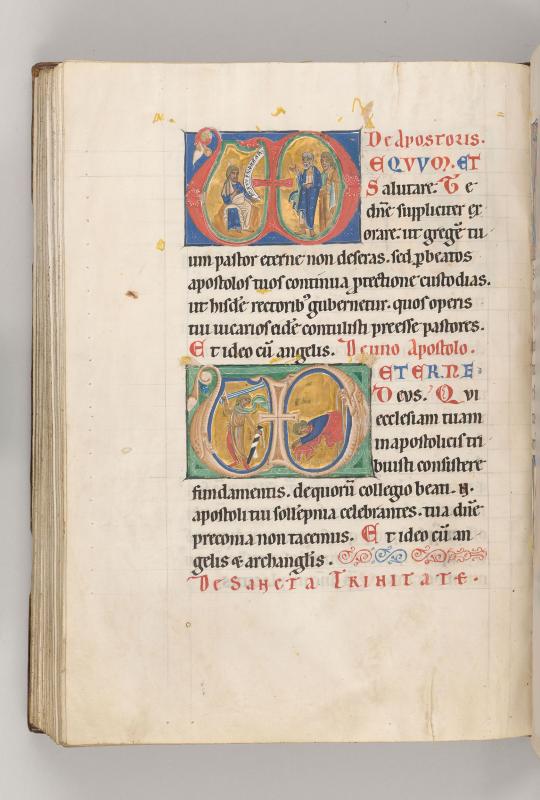 De Apostolis.
EQVVM. ET
Salutare. Te
dñe suppliciter ex
orare. ut gregē tu
um pastor eterne non deseras. sed p beatos
apostolos tuos continua ptectione custodias.
ut hisdē rectorib; gubernetur. quos operis
tui uicarios eidē contulisti preesse pastores.
Et ideo cū angelis. De uno Apostolo.
ETERNE
Deus. Qui
ecclesiam tuam
in apostolicis tri
buisti consistere
fundamentis. de quorū collegio beati .N.
apostoli tui sollēpnia celebrantes. tua dñe
preconia non tacemus. Et ideo cū an
gelis & archanglis.
De Sancta Trinitate.